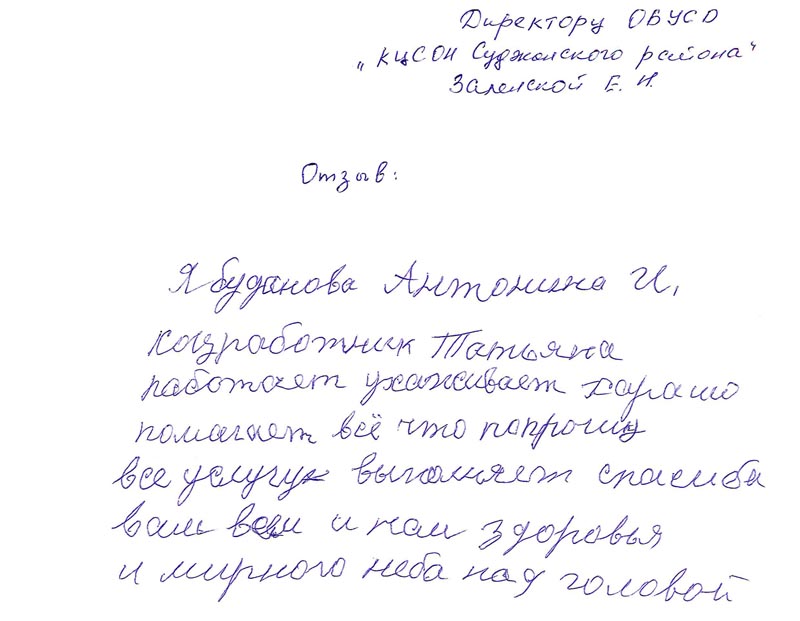 Директору ОБУСО
„КЦСОН Суджанского района"
Заленской Е. И.
Отзыв:
Я буданова Антонина И,
соцработник Татьяна
работает ухаживает харашо
помагает всё что попрошу
все услугу выполняет спасиба
вам всем и нам здоровья
и мирного неба над головой